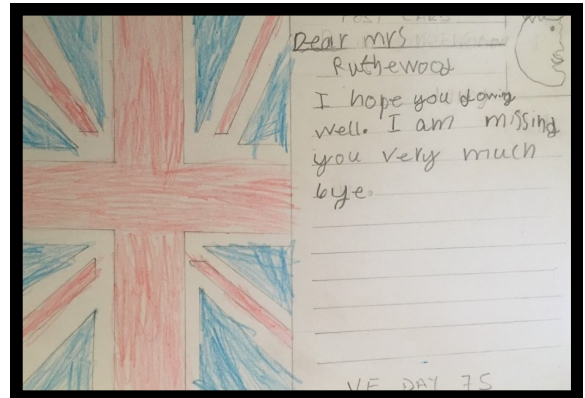 POST CARD
Dear mrs
Ruthewood
I hope you dowing
well. I am missing
you very much
bye.
VE DAY 75